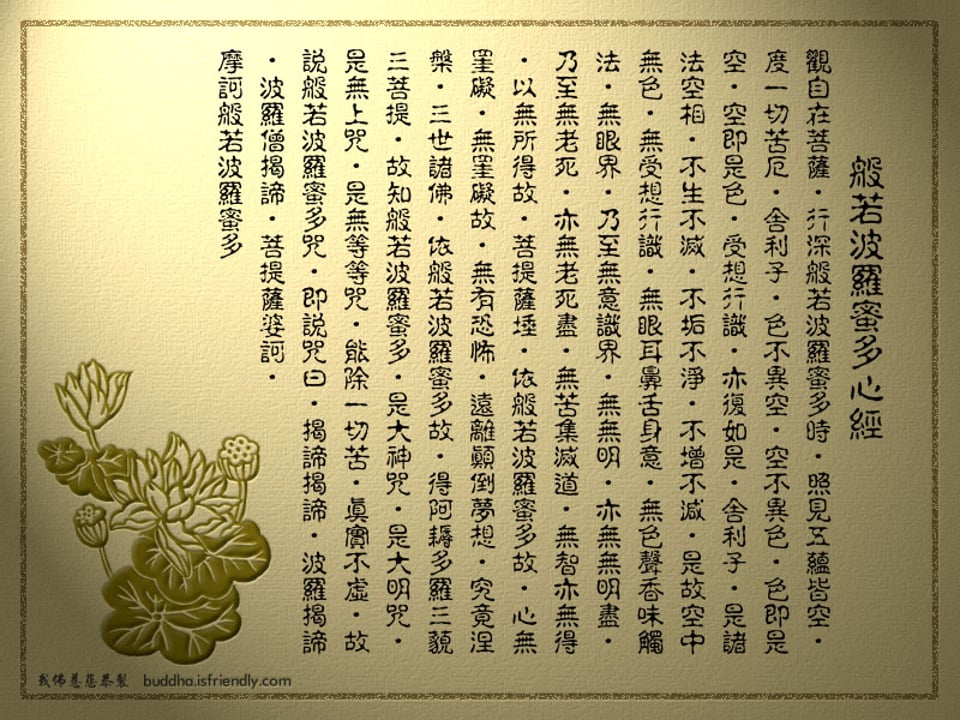 般若波羅蜜多心經
觀自在菩薩・行深般若波羅蜜多時・照見五蘊皆空・
度一切苦厄・舍利子・色不異空・空不異色・色即是
空・空即是色・受想行識・亦復如是・舍利子・是諸
法空相・不生不滅・不垢不淨・不增不減・是故空中
無色・無受想行識・無眼耳鼻舌身意・無色聲香味觸
法・無眼界・乃至無意識界・無無明・亦無無明盡・
乃至無老死・亦無老死盡・無苦集滅道・無智亦無得
・以無所得故・菩提薩埵・依般若波羅蜜多故・心無
罣礙・無罣礙故・無有恐怖・遠離顛倒夢想・究竟涅
槃・三世諸佛・依般若波羅蜜多故・得阿耨多羅三藐
三菩提・故知般若波羅蜜多・是大神咒・是大明咒・
是無上咒・是無等等咒・能除一切苦・真實不虛・故
說般若波羅蜜多咒・即說咒曰・揭諦揭諦・波羅揭諦
・波羅僧揭諦・菩提薩婆訶・
摩訶般若波羅蜜多
我佛慈悲恭製 buddha.isfriendly.com